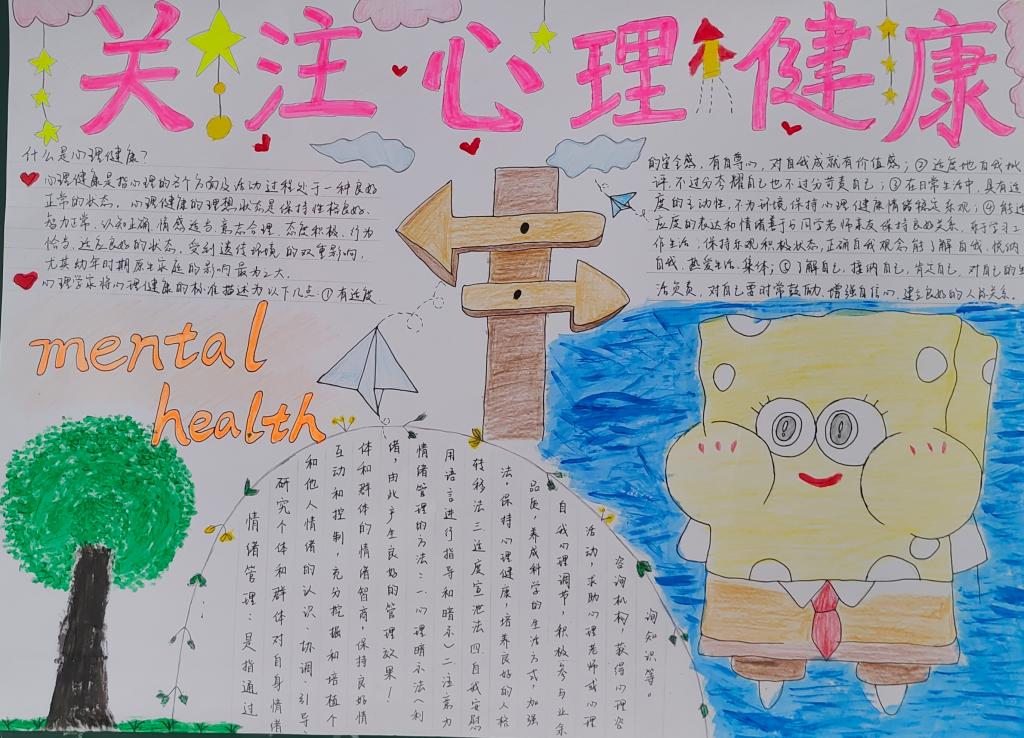 关注心理健康
什么是心理健康?
心理健康是指心理的各个方面及活动过程处于一种良好
正常的状态。心理健康的理想状态是保持性格良好、
智力正常、认知正确、情感适当、意志合理、态度积极、行为
恰当、适应良好的状态。受到遗传环境的双重影响,
尤其幼年时期原生家庭的影响最为之大。
心理学家将心理健康的标准描述为以下几点:①有适度
的安全感,有自尊心,对自我成就有价值感;②适度地自我批
评,不过分夸耀自己也不过分苛责自己;③在日常生活中,具有适
度的主动性,不为环境保持心理健康情绪稳定乐观;④能适
应度的表达和情绪善于与同学老师亲友保持良好关系,乐于学习工
作生活,保持乐观积极状态,正确自我观念能了解自我,悦纳
自我,热爱生活、集体;⑤了解自己,接纳自己,肯定自己,对自己的生
活负责,对自己要时常鼓励,增强自信心,建立良好的人际关系。
mental
health
情绪管理:是指通过
研究个体和群体对自身情绪
和他人情绪的认识、协调、引导、
互动和控制,充分挖掘和培植个
体和群体的情绪智商、保持良好情
绪,由此产生良好的管理效果!
情绪管理的方法:一.心理暗示法(利
用语言进行指导和暗示)二.注意力
转移法三.适度宣泄法四.自我安慰
法。保持心理健康,培养良好的人格
品质,养成科学的生活方式,加强
自我心理调节,积极参与业余
活动,求助心理老师或心理
咨询机构,获得心理咨
询知识等。